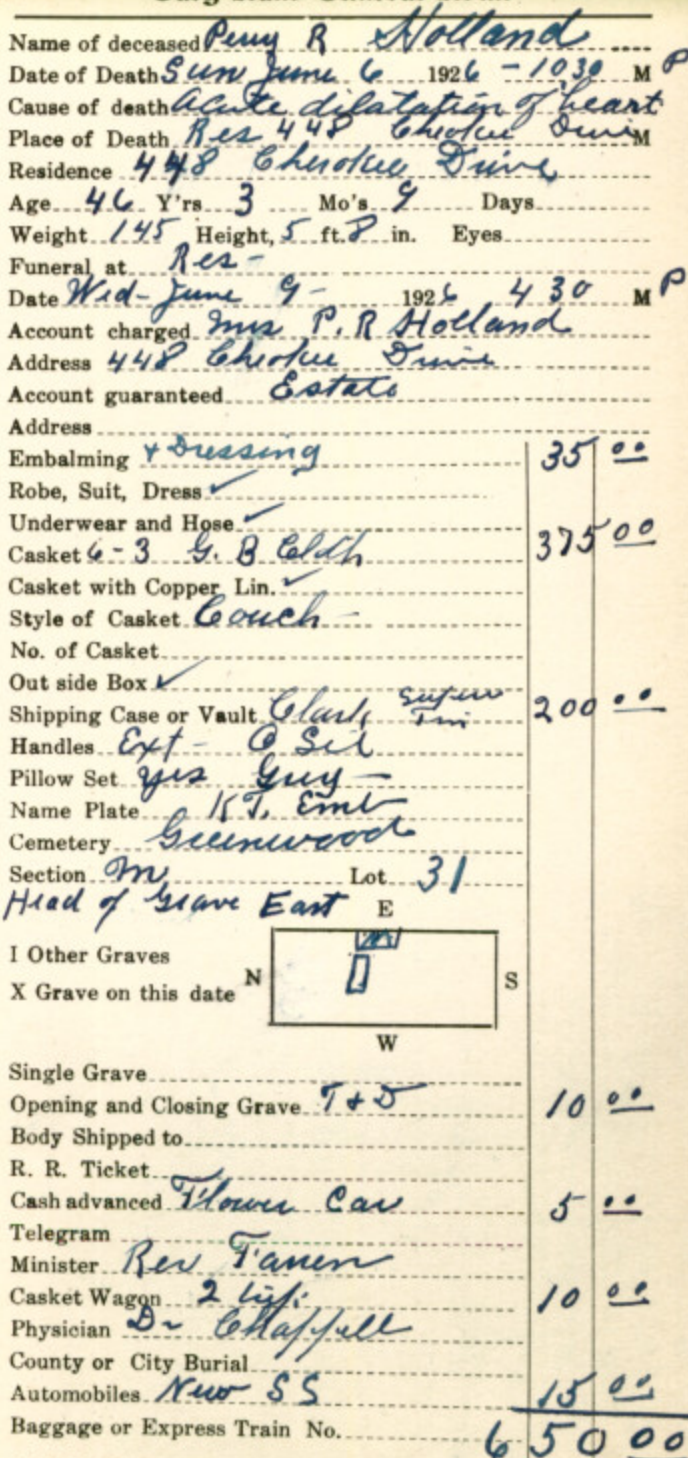 Name of deceased Perry R Holland
Date of Death Sun June 6 1926 - 10 30 M P
Cause of death Acute dilatation of heart
Place of Death Res 448 Cherokee Drive M
Residence 448 Cherokee Drive
Age 46 Y'rs 3 Mo's 9 Days
Weight 145 Height, 5 ft. 8 in. Eyes
Funeral at Res -
Date Wed - June 9 - 1926 4 30 M P
Account charged Mrs P. R Holland
Address 448 Cherokee Drive
Account guaranteed Estate
Address
Embalming + Dressing 35 00
Robe, Suit, Dress ✓
Underwear and Hose ✓
Casket 6-3 G. B Cloth 375 00
Casket with Copper Lin. ✓
Style of Casket Couch -
No. of Casket
Out side Box ✓
Shipping Case or Vault Clark 200 00
Handles Ext - O Sil
Pillow Set yes Grey -
Name Plate K T. Emb
Cemetery Greenwood
Section M Lot 31
Head of Grave East E
I Other Graves
X Grave on this date N S
W
Single Grave
Opening and Closing Grave T + D 10 00
Body Shipped to
R. R. Ticket
Cash advanced Flower Car 5 00
Telegram
Minister Rev
Casket Wagon 2 10 00
Physician Dr Chappell
County or City Burial
Automobiles New S S 15 00
Baggage or Express Train No. 650 00